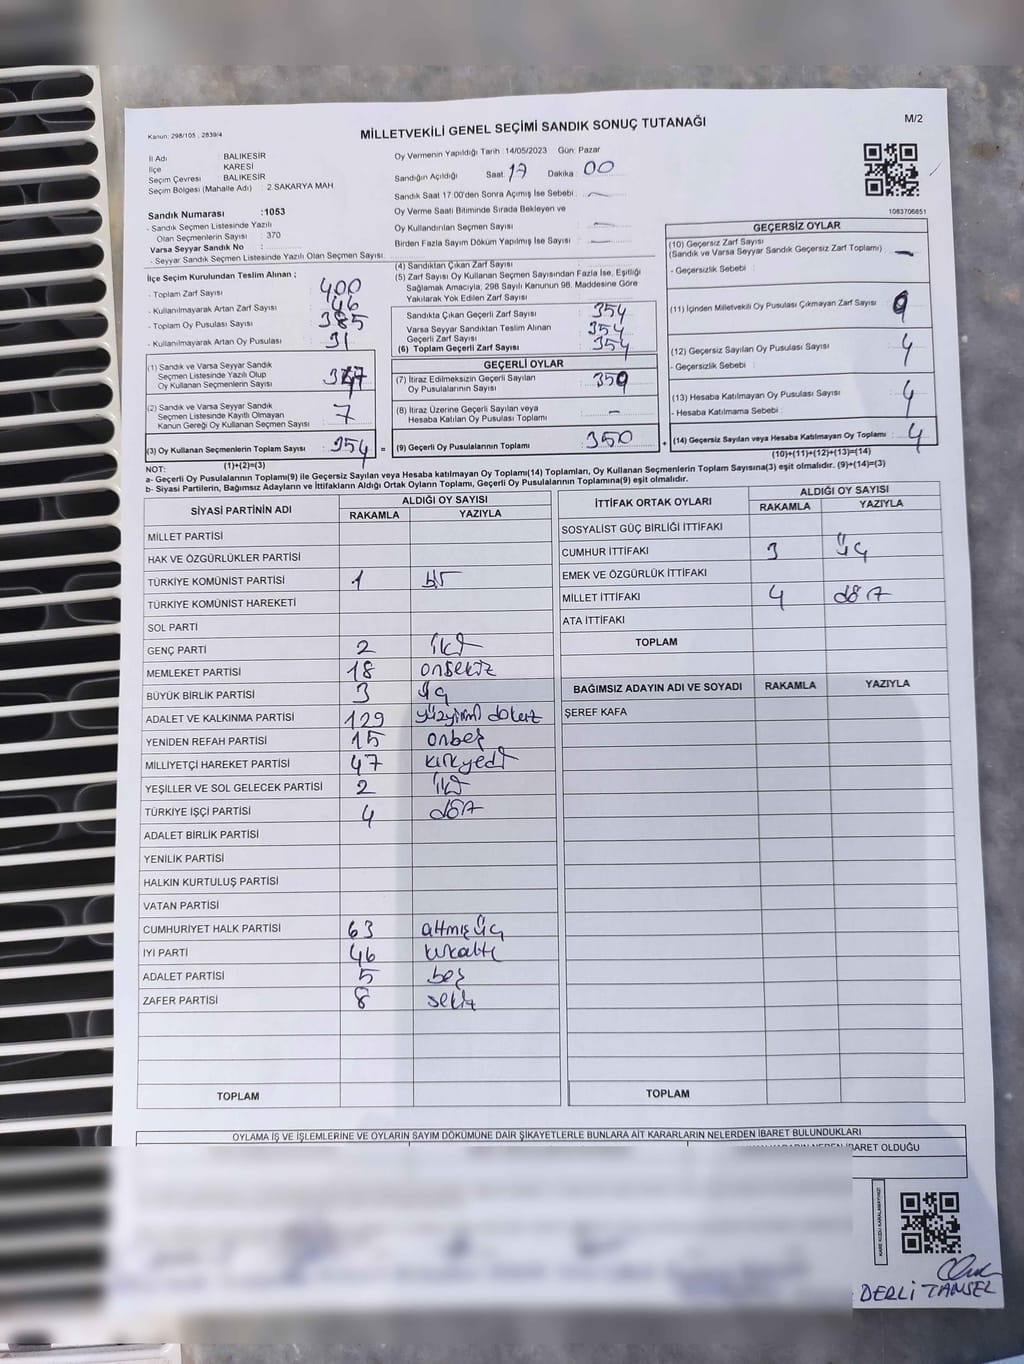 Kanun: 298/105 , 2839/4
MİLLETVEKİLİ GENEL SEÇİMİ SANDIK SONUÇ TUTANAĞI
M/2
İl Adı : BALIKESİR
İlçe : KARESİ
Seçim Çevresi : BALIKESİR
Seçim Bölgesi (Mahalle Adı) : 2.SAKARYA MAH
Sandık Numarası :1053
- Sandık Seçmen Listesinde Yazılı
Olan Seçmenlerin Sayısı : 370
Varsa Seyyar Sandık No :
- Seyyar Sandık Seçmen Listesinde Yazılı Olan Seçmen Sayısı:
Oy Vermenin Yapıldığı Tarih :14/05/2023 Gün: Pazar
Sandığın Açıldığı Saat: 17 Dakika: 00
Sandık Saat 17:00'den Sonra Açılmış İse Sebebi :
Oy Verme Saati Bitiminde Sırada Bekleyen ve
Oy Kullandırılan Seçmen Sayısı :
Birden Fazla Sayım Döküm Yapılmış İse Sayısı :
1083706851
İlçe Seçim Kurulundan Teslim Alınan ;
- Toplam Zarf Sayısı : 400
- Kullanılmayarak Artan Zarf Sayısı : 46
- Toplam Oy Pusulası Sayısı : 385
- Kullanılmayarak Artan Oy Pusulası : 31
(1) Sandık ve Varsa Seyyar Sandık
Seçmen Listesinde Yazılı Olup
Oy Kullanan Seçmenlerin Sayısı : 347
(2) Sandık ve Varsa Seyyar Sandık
Seçmen Listesinde Kayıtlı Olmayan
Kanun Gereği Oy Kullanan Seçmen Sayısı : 7
(3) Oy Kullanan Seçmenlerin Toplam Sayısı : 354 =
(1)+(2)=(3)
(4) Sandıktan Çıkan Zarf Sayısı :
(5) Zarf Sayısı Oy Kullanan Seçmen Sayısından Fazla İse, Eşitliği
Sağlamak Amacıyla, 298 Sayılı Kanunun 98. Maddesine Göre
Yakılarak Yok Edilen Zarf Sayısı :
Sandıkta Çıkan Geçerli Zarf Sayısı : 354
Varsa Seyyar Sandıktan Teslim Alınan
Geçerli Zarf Sayısı : 354
(6) Toplam Geçerli Zarf Sayısı : 354
GEÇERLİ OYLAR
(7) İtiraz Edilmeksizin Geçerli Sayılan
Oy Pusulalarının Sayısı : 350
(8) İtiraz Üzerine Geçerli Sayılan veya
Hesaba Katılan Oy Pusulası Toplamı : -
(9) Geçerli Oy Pusulalarının Toplamı : 350 +
GEÇERSİZ OYLAR
(10) Geçersiz Zarf Sayısı
(Sandık ve Varsa Seyyar Sandık Geçersiz Zarf Toplamı) : -
- Geçersizlik Sebebi :
(11) İçinden Milletvekili Oy Pusulası Çıkmayan Zarf Sayısı : 0
(12) Geçersiz Sayılan Oy Pusulası Sayısı : 4
- Geçersizlik Sebebi :
(13) Hesaba Katılmayan Oy Pusulası Sayısı : 4
- Hesaba Katılmama Sebebi :
(14) Geçersiz Sayılan veya Hesaba Katılmayan Oy Toplamı : 4
(10)+(11)+(12)+(13)=(14)
NOT:
a- Geçerli Oy Pusulalarının Toplamı(9) ile Geçersiz Sayılan veya Hesaba katılmayan Oy Toplamı(14) Toplamları, Oy Kullanan Seçmenlerin Toplam Sayısına(3) eşit olmalıdır. (9)+(14)=(3)
b- Siyasi Partilerin, Bağımsız Adayların ve İttifakların Aldığı Ortak Oyların Toplamı, Geçerli Oy Pusulalarının Toplamına(9) eşit olmalıdır.
SİYASİ PARTİNİN ADI ALDIĞI OY SAYISI
RAKAMLA YAZIYLA
MİLLET PARTİSİ
HAK VE ÖZGÜRLÜKLER PARTİSİ
TÜRKİYE KOMÜNİST PARTİSİ 1 bir
TÜRKİYE KOMÜNİST HAREKETİ
SOL PARTİ
GENÇ PARTİ 2 iki
MEMLEKET PARTİSİ 18 onsekiz
BÜYÜK BİRLİK PARTİSİ 3 üç
ADALET VE KALKINMA PARTİSİ 129 yüzyirmi dokuz
YENİDEN REFAH PARTİSİ 15 onbeş
MİLLİYETÇİ HAREKET PARTİSİ 47 kırkyedi
YEŞİLLER VE SOL GELECEK PARTİSİ 2 iki
TÜRKİYE İŞÇİ PARTİSİ 4 dört
ADALET BİRLİK PARTİSİ
YENİLİK PARTİSİ
HALKIN KURTULUŞ PARTİSİ
VATAN PARTİSİ
CUMHURİYET HALK PARTİSİ 63 altmış üç
İYİ PARTİ 46 kırkaltı
ADALET PARTİSİ 5 beş
ZAFER PARTİSİ 8 sekiz
TOPLAM
İTTİFAK ORTAK OYLARI ALDIĞI OY SAYISI
RAKAMLA YAZIYLA
SOSYALİST GÜÇ BİRLİĞİ İTTİFAKI
CUMHUR İTTİFAKI 3 üç
EMEK VE ÖZGÜRLÜK İTTİFAKI
MİLLET İTTİFAKI 4 dört
ATA İTTİFAKI
TOPLAM
BAĞIMSIZ ADAYIN ADI VE SOYADI RAKAMLA YAZIYLA
ŞEREF KAFA
TOPLAM
OYLAMA İŞ VE İŞLEMLERİNE VE OYLARIN SAYIM DÖKÜMÜNE DAİR ŞİKAYETLERLE BUNLARA AİT KARARLARIN NELERDEN İBARET BULUNDUKLARI
İBARET OLDUĞU
KARE KODU KARALAMAYINIZ!
DERLİ TANSEL